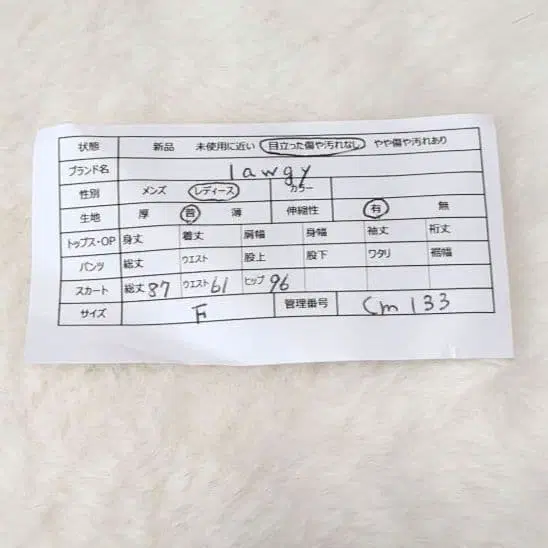 状態 新品 未使用に近い 目立った傷や汚れなし やや傷や汚れあり
ブランド名 lawgy
性別 メンズ レディース カラー
生地 厚 普 薄 伸縮性 有 無
トップス・OP 身丈 着丈 肩幅 身幅 袖丈 裄丈
パンツ 総丈 ウエスト 股上 股下 ワタリ 裾幅
スカート 総丈 87 ウエスト 61 ヒップ 96
サイズ F 管理番号 Cm 133